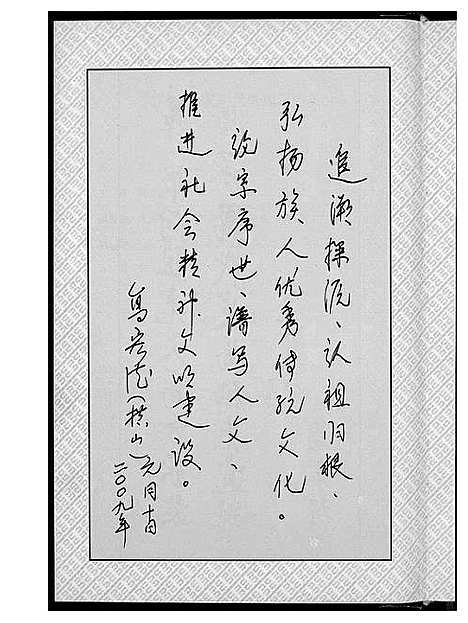 追溯探源、认祖归根、
弘扬族人优秀传统文化。
字序世、谱写人文、
推进社会精神文明建设。
二〇〇九年
元月十日